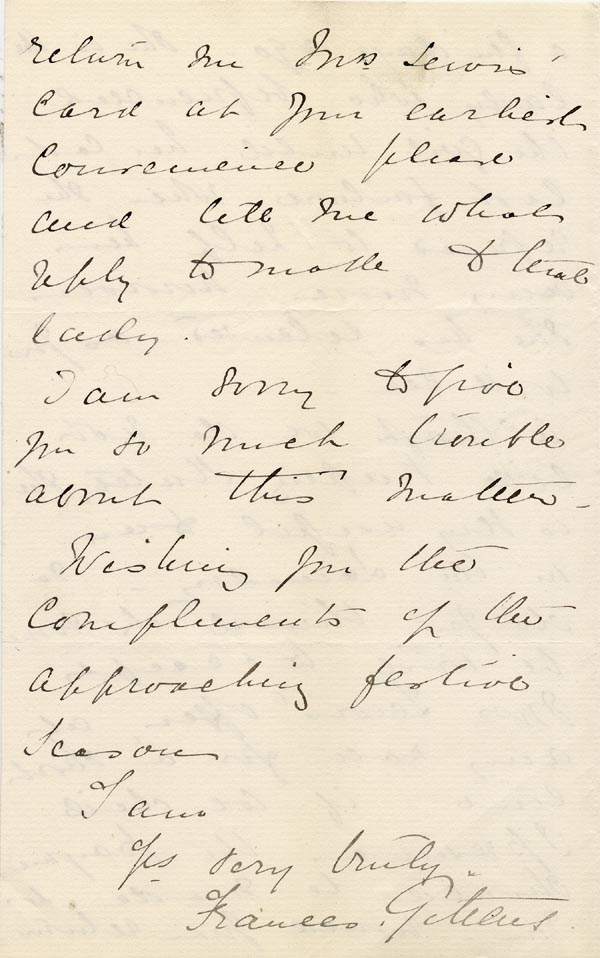 return me Mrs Lewis'
Card at your earliest
Convenience please
and tell me what
reply to make to that
lady.
I am sorry to give
you so much trouble
about this matter -
Wishing you the
Compliments of the
approaching festive
Season
I am
Yrs very truly.
Frances